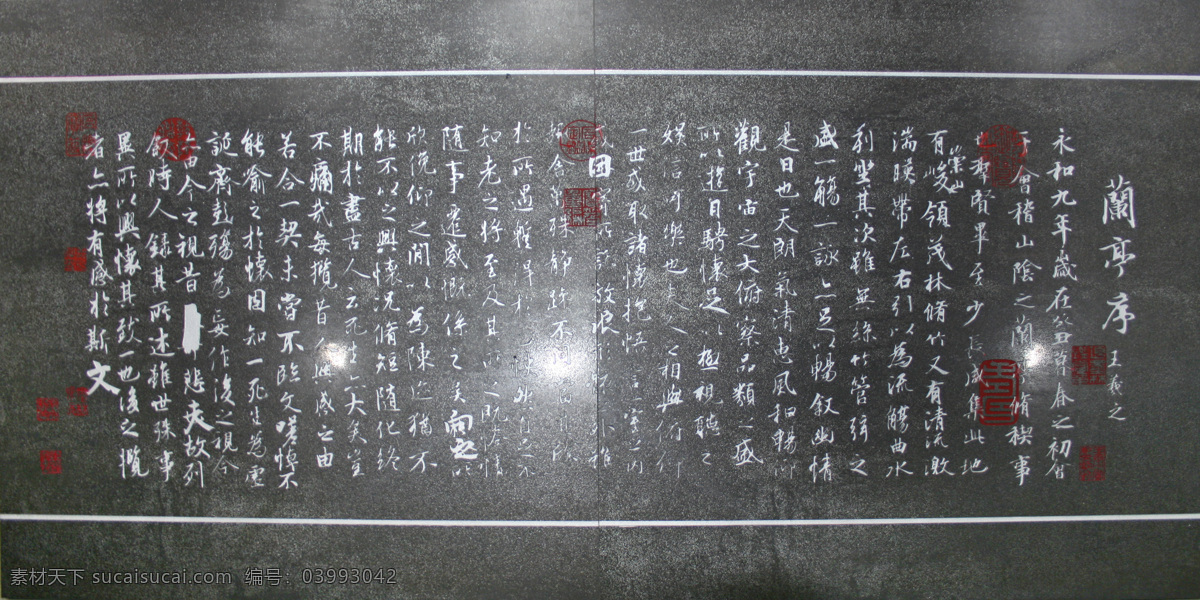 蘭亭序
王羲之
永和九年歲在癸丑暮春之初會
會稽山陰之蘭 脩稧事
羣賢畢至少長咸集此地
崇山
有峻領茂林脩竹又有清流激
湍暎帶左右引以為流觴曲水
列坐其次雖無絲竹管弦之
盛一觴一詠亦足以暢敘幽情
是日也天朗氣清惠風和暢仰
觀宇宙之大俯察品類之盛
所以遊目騁懷足以極視聽之
娛信可樂也夫人之相與俯仰
一世或取諸懷抱悟言一室之內
因 放浪
殊靜躁不
於所遇蹔得於己
知老之將至及其所之既惓情
隨事遷感慨係之矣向之所
欣俛仰之間以為陳迹猶不
能不以之興懷況脩短隨化終
期於盡古人云死生亦大矣豈
不痛哉每攬昔人興感之由
若合一契未嘗不臨文嗟悼不
能喻之於懷固知一死生為虛
誕齊彭殤為妄作後之視今
由今之視昔 悲夫故列
敘時人錄其所述雖世殊事
異所以興懷其致一也後之攬
者亦將有感於斯文
素材天下 sucaisucai.com 编号：03993042